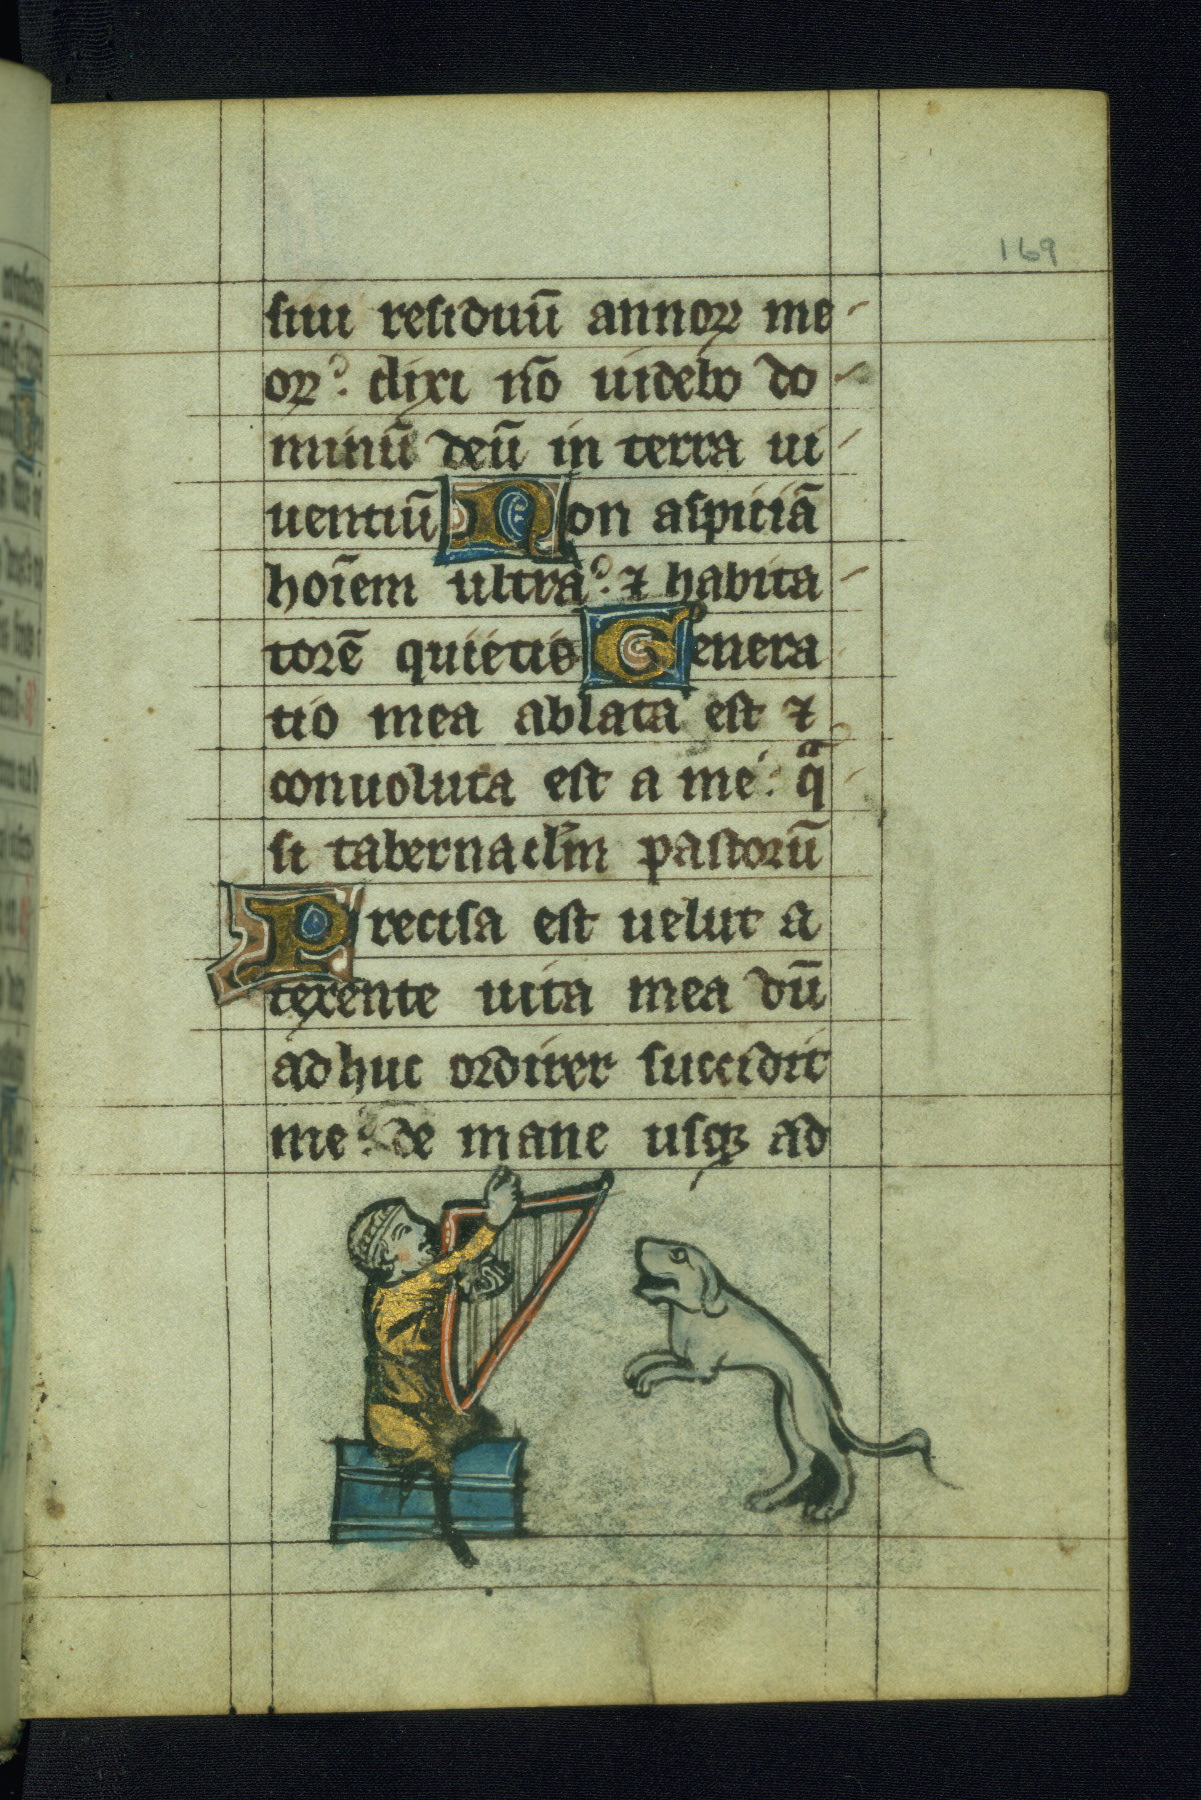 169
siui residuū annoꝝ me
oꝝ. dixi nō uidebo do
minū deū in terra ui
uentiū Non aspiciā
hoīem ultra. ⁊ habita
torē quietis Genera
tio mea ablata est ⁊
conuoluta est a me. qᵃ
si tabernaclm̄ pastorū
Precisa est uelut a
texente uita mea dū
adhuc ordirer succidit
me. de mane usqꝫ ad